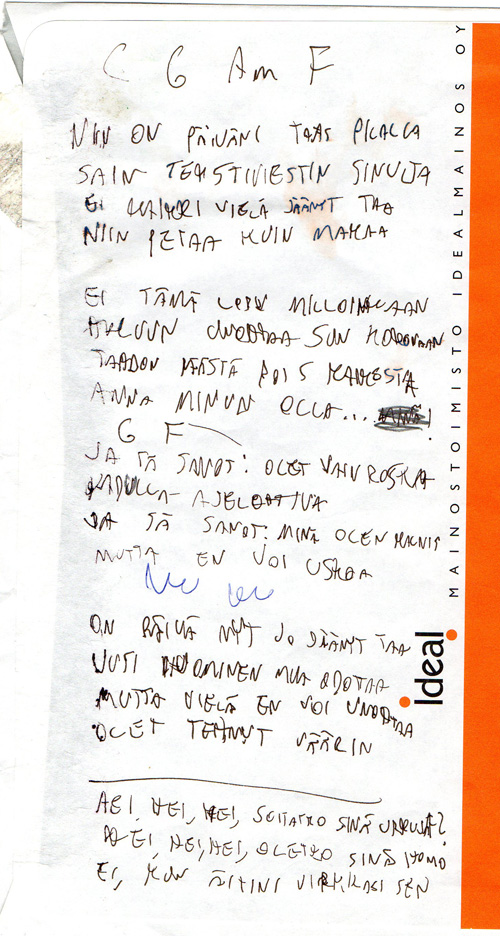 C G Am F
NIIN ON PÄIVÄNI TAAS PILALLA
SAIN TEKSTIVIESTIN SINULTA
EI KAIKKI VIELÄ JÄÄNYT TAA
NIIN PETAA KUIN MAKAA
EI TÄMÄ LOPU MILLOINKAAN
HALUUN UNOHTAA SUN KOKONAAN
TAHDON PÄÄSTÄ POIS KAIKESTA
ANNA MINUN OLLA...
G F
JA SÄ SANOT: OLET VAIN ROSKA
KADULLA AJELEHTIVA
JA SÄ SANOT: MINÄ OLEN KAUNIS
MUTTA EN VOI USKOA
ON PÄIVÄ NYT JO JÄÄNYT TAA
UUSI HUOMINEN MUA ODOTAA
MUTTA VIELÄ EN VOI UNOHTAA
OLET TEHNYT VÄÄRIN
HEI, HEI, HEI, SOITATKO SINÄ URKUJA?
HEI, HEI, HEI, OLETKO SINÄ HOMO
EI, KUN ÄITINI VIRKKASI SEN
ideal
MAINOSTOIMISTO IDEALMAINOS OY